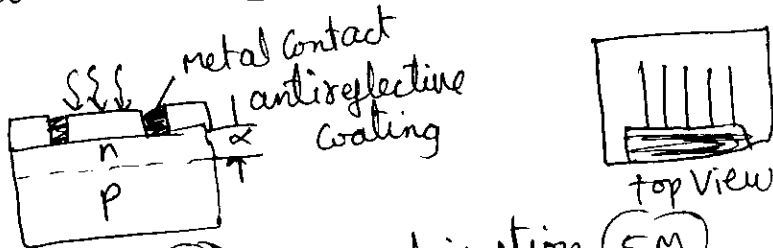 metal Contact
antireflective
coating
α
n
p
top View
5M